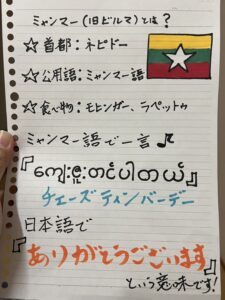 ミャンマー(旧ビルマ)とは?
☆首都:ネピドー
☆公用語:ミャンマー語
☆食べ物:モヒンガー、ラペットゥ
ミャンマー語で一言♪
『ကျေးဇူးတင်ပါတယ်』
チェーズティンバーデー
日本語で
『ありがとうございます』
という意味です!